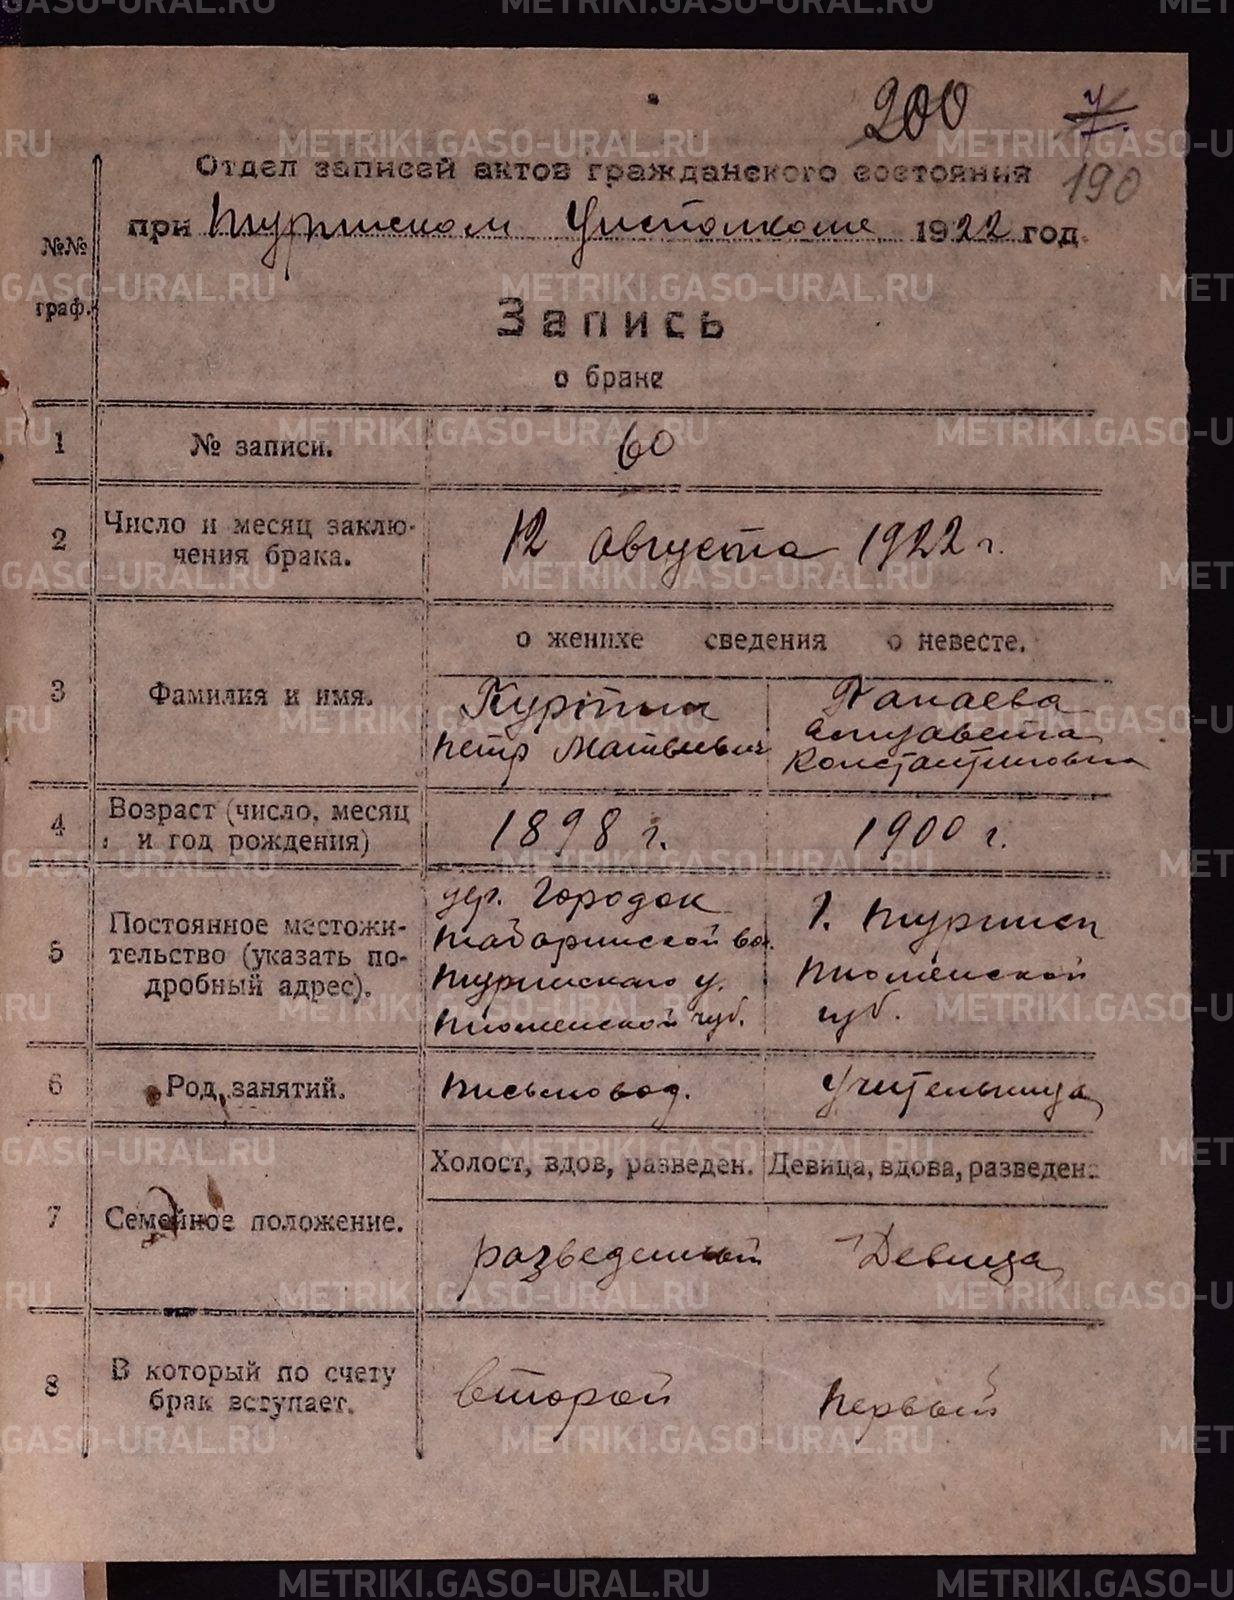 200
7.
190
Отдел записей актов гражданского состояния
при Туринском Уисполкоме 1922 год.
№№
граф.
Запись
о браке
1 № записи. 60
2 Число и месяц заклю-
чения брака. 12 августа 1922 г.
о женихе сведения о невесте.
3 Фамилия и имя.
Панаева
Петр Матвеевич Елизавета
Константиновна
4 Возраст (число, месяц
и год рождения) 1898 г. 1900 г.
5 Постоянное местожи-
тельство (указать по-
дробный адрес).
дер. Городок
Табаринской вол.
Туринскаго у.
Тюменской губ.
г. Туринск
Тюменской
губ.
6 Род занятий. Письмовод. Учительница
Холост, вдов, разведен. Девица, вдова, разведен.
7 Семейное положение.
разведенный Девица
8 В который по счету
брак вступает. второй первый
METRIKI.GASO-URAL.RU